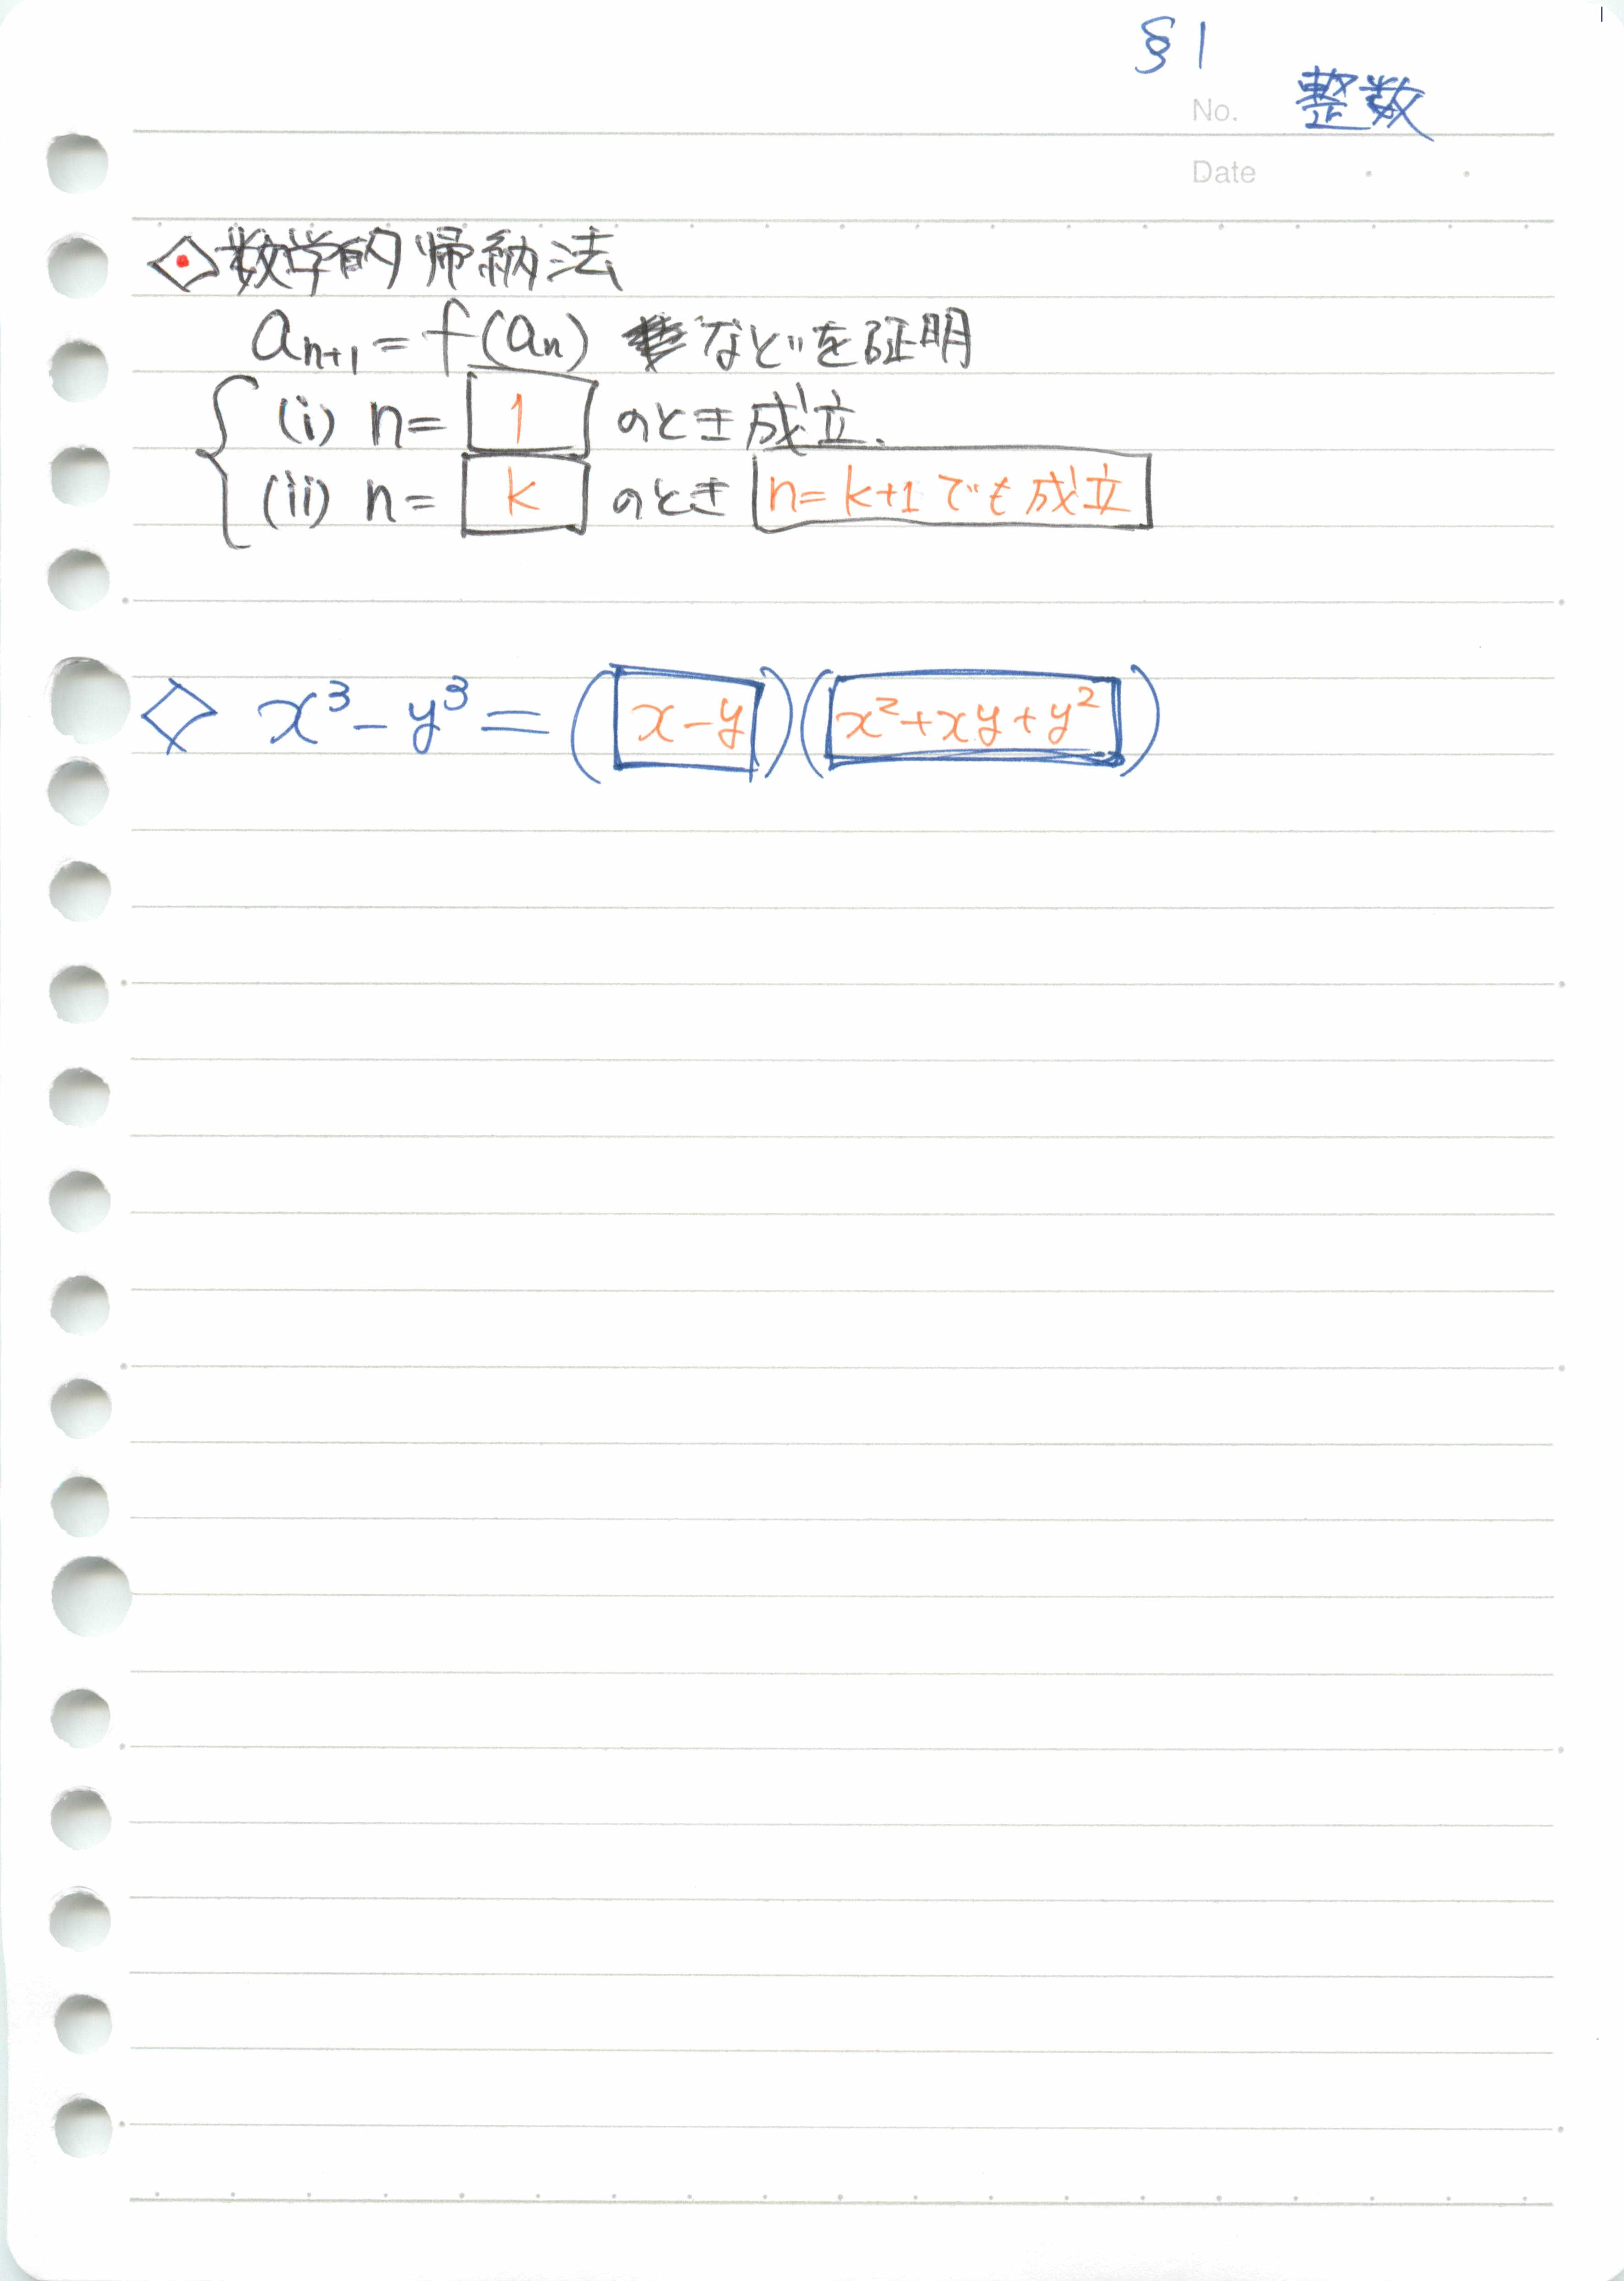 §1
No. 整数
Date
◇数学的帰納法
aₙ₊₁=f(aₙ) などを証明
(i) n= 1 のとき成立.
(ii) n= k のとき n=k+1でも成立
◇ x³-y³=(x-y)(x²+xy+y²)